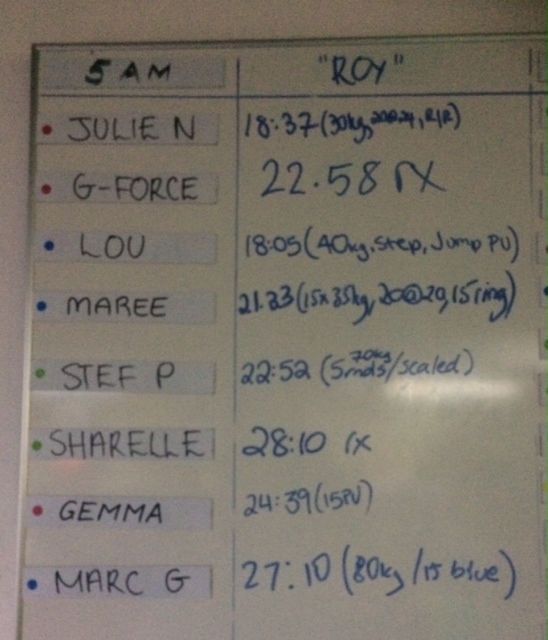 5 AM "ROY"
JULIE N 18:37 (30kg, R/R)
G-FORCE 22.58 rx
LOU 18:05 (40kg, step, Jump PU)
MAREE 21.33 (15x35kg, 20@20, 15 ring)
STEF P 22:52 (5rnds 70kg/scaled)
SHARELLE 28:10 rx
GEMMA 24:39 (15PU)
MARC G 27:10 (80kg/15 blue)